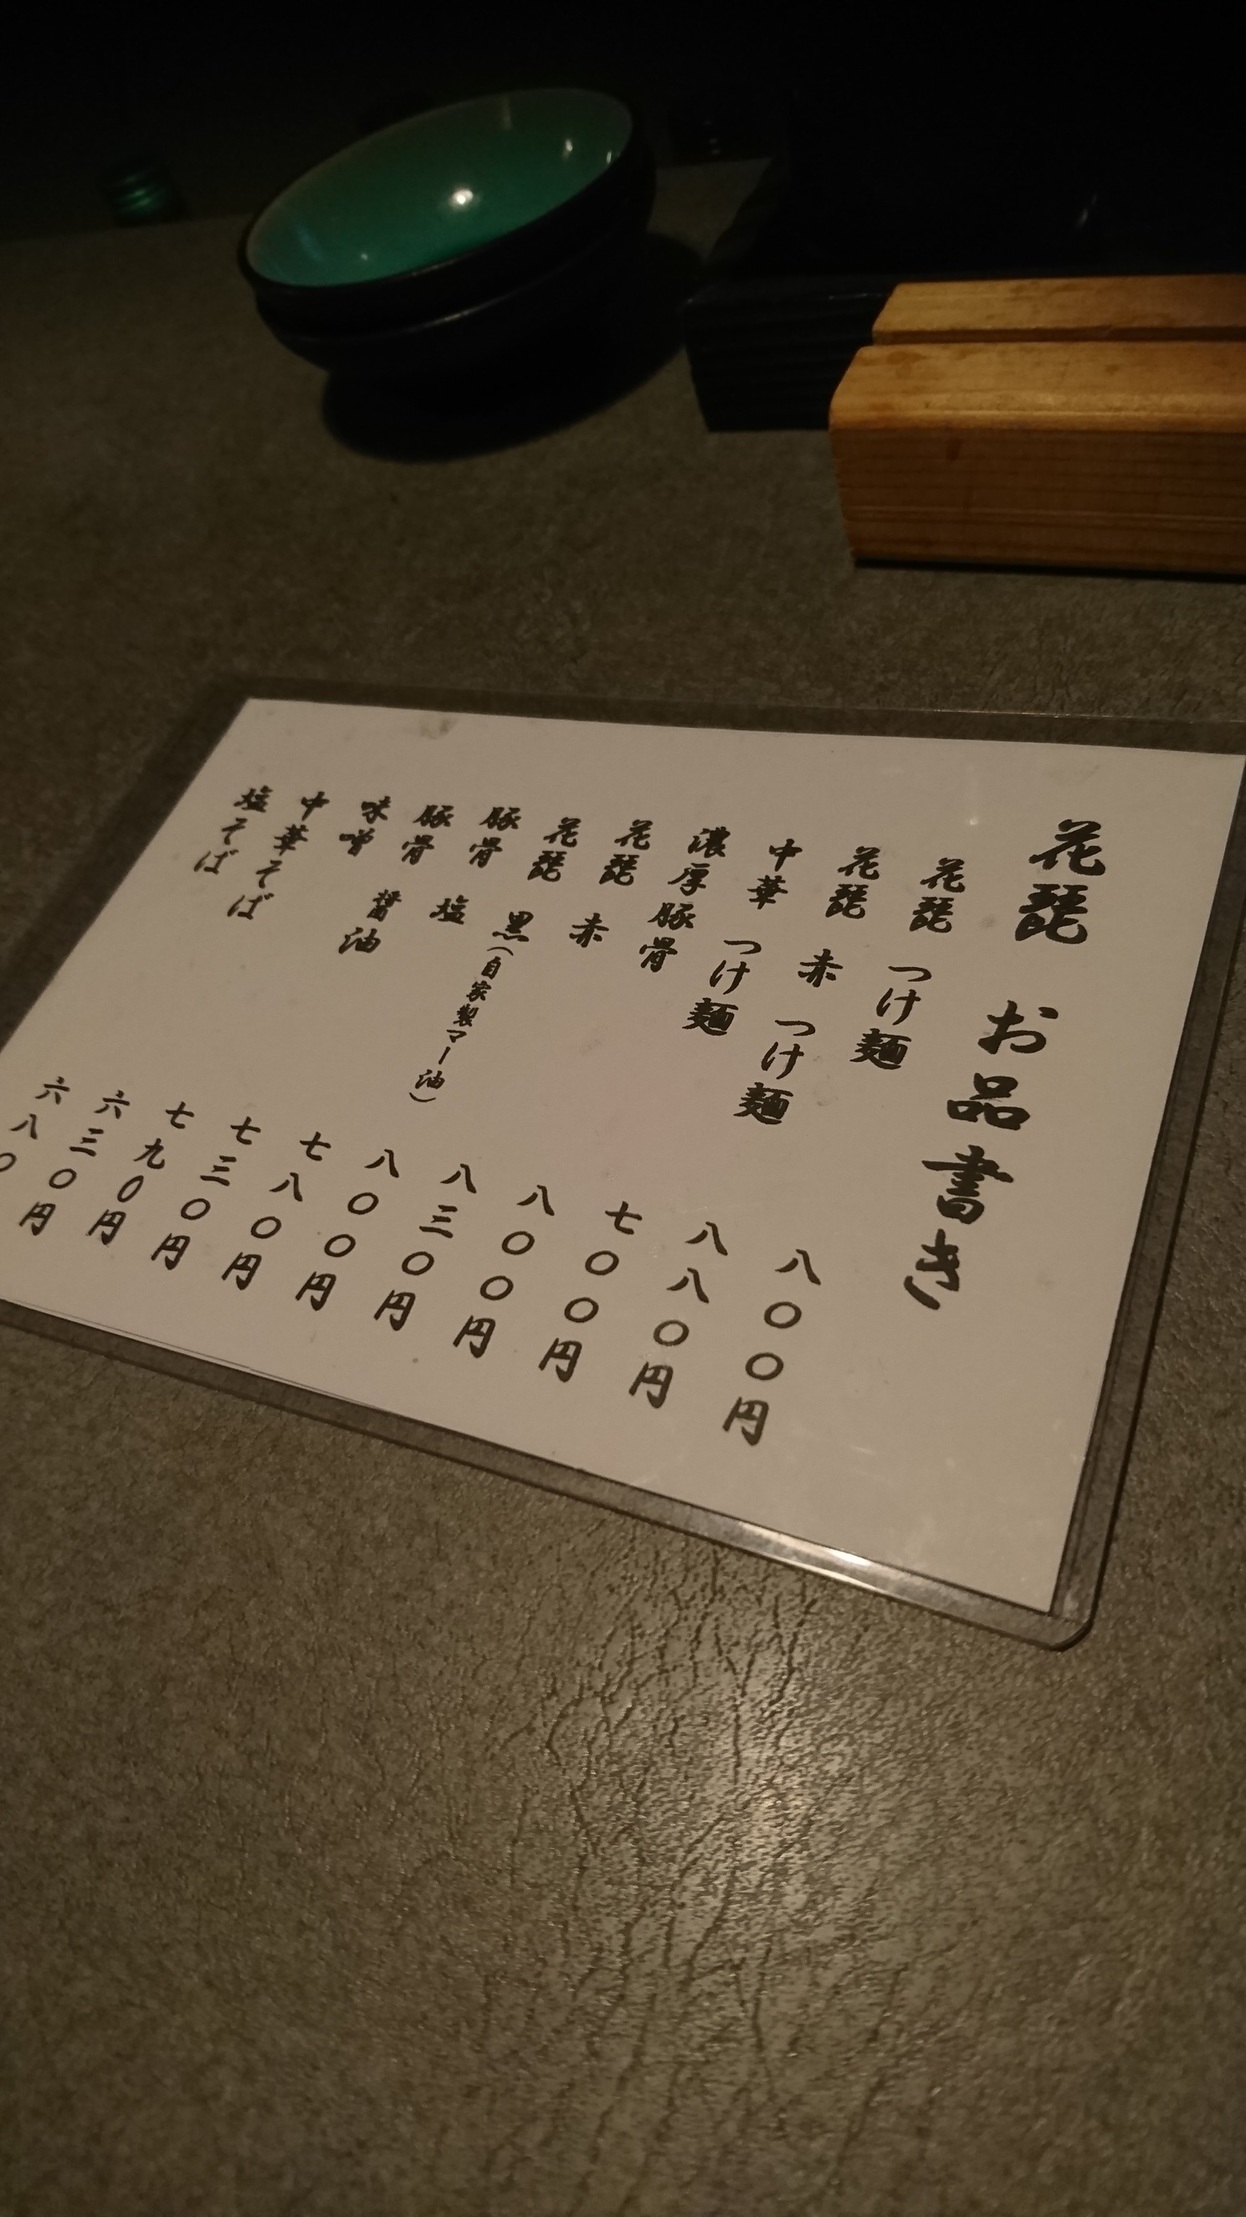 花琵 お品書き
花琵 つけ麺 八〇〇円
花琵 赤 つけ麺 八八〇円
中華 つけ麺 七〇〇円
濃厚豚骨 八〇〇円
花琵 赤 八三〇円
花琵 黒(自家製マー油) 八〇〇円
豚骨 塩 七八〇円
豚骨 醤油 七三〇円
味噌 七九〇円
中華そば 六三〇円
塩そば 六八〇